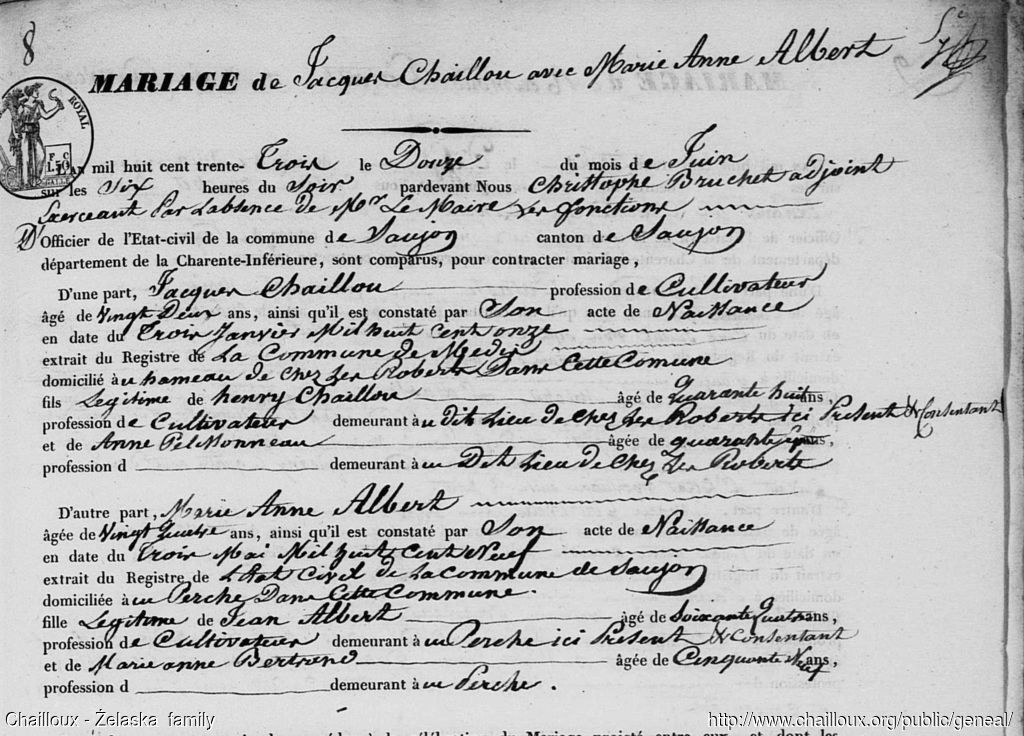 8
MARIAGE de Jacques Chaillou avec Marie Anne Albert
ROYAL
L'AN mil huit cent trente-Trois le Douze du mois de Juin
sur les Six heures du Soir pardevant Nous Christophe Bruchet adjoint
Exerceant Par Labsence de Mr Le Maire Les fonctions
D'Officier de l'Etat-civil de la commune de Saujon canton de Saujon
département de la Charente-Inférieure, sont comparus, pour contracter mariage,
D'une part, Jacques Chaillou profession de Cultivateur
âgé de Vingt Deux ans, ainsi qu'il est constaté par Son acte de Naissance
en date du Trois Janvier Mil huit Cent onze
extrait du Registre de La Commune de Medis
domicilié à u hameau de Chez Les Roberts Dans Cette Comune
fils Legitime de henry Chaillou âgé de Quarante huit ans,
profession de Cultivateur demeurant à u dit Lieu de Chez Les Roberts ici Present & Consentant
et de Anne Pelissonneau âgée de quarante ans,
profession d demeurant à u Dit Lieu de Chez Les Roberts
D'autre part, Marie Anne Albert
âgée de Vingt Quatre ans, ainsi qu'il est constaté par Son acte de Naissance
en date du Trois Mai Mil huit Cent Neuf
extrait du Registre de L'Etat Civil de La Commune de Saujon
domiciliée à u Perche Dans Cette Commune.
fille Legitime de Jean Albert âgé de Soixante Quatre ans,
profession de Cultivateur demeurant à u Perche ici Present & Consentant
et de Marie anne Bertrend âgée de Cinquante Neuf ans,
profession d demeurant à u Perche.
Chailloux - Żelaska family http://www.chailloux.org/public/geneal/